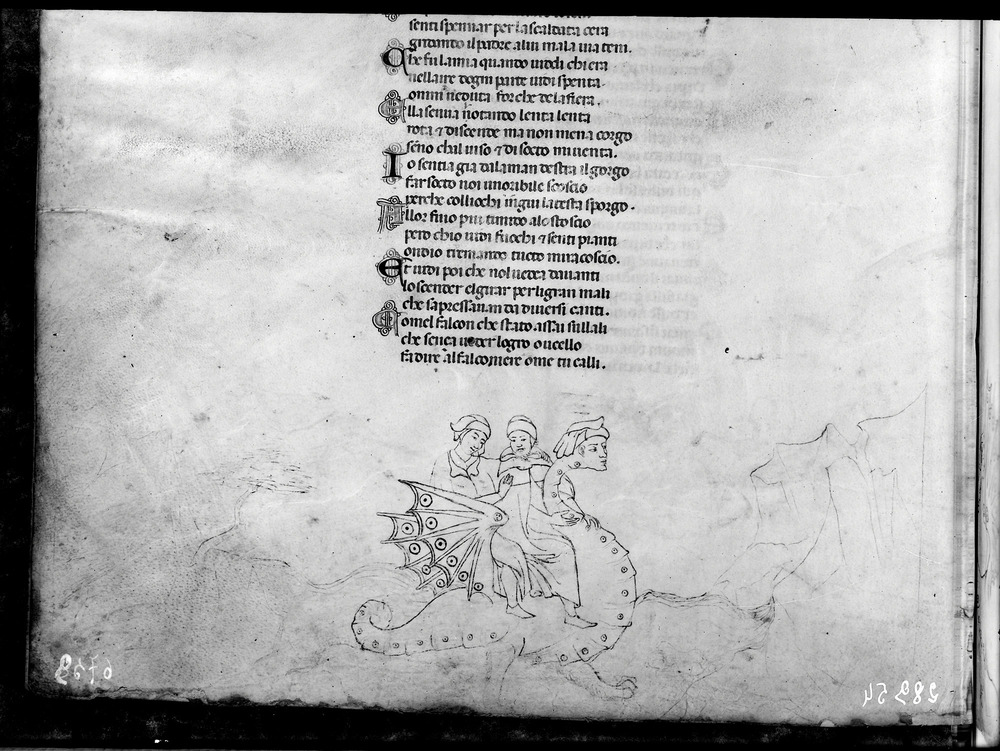 senti spennar per la scaldata cera
gridando il padre alui mala uia teni.
Che fu lamia quando uiddi chi era
nellaire dogni parte uidi spenta
omni ueduta for che dela fiera.
Ella senua notando lenta lenta
rota ⁊ discende ma non mena corgo
seno chal uiso ⁊ di socto miuenta.
Io sentia gia dalaman destra il gorgo
far socto noi un oribile scroscio
perche colliochi ingiu latesta sporgo.
Allor fuio piu timido alo stoscio
pero chio uidi fuochi ⁊ senti pianti
ondio tremando tucto mi racoscio.
Et uidi poi che nol uedea dauanti
lo scender elgirar per li gran mali
che sapressauan da diuersi canti.
Comel falcon che stato assai sullali
che senca ueder logro o ucello
fa dire al falconiere ome tu calli.
6753
28254